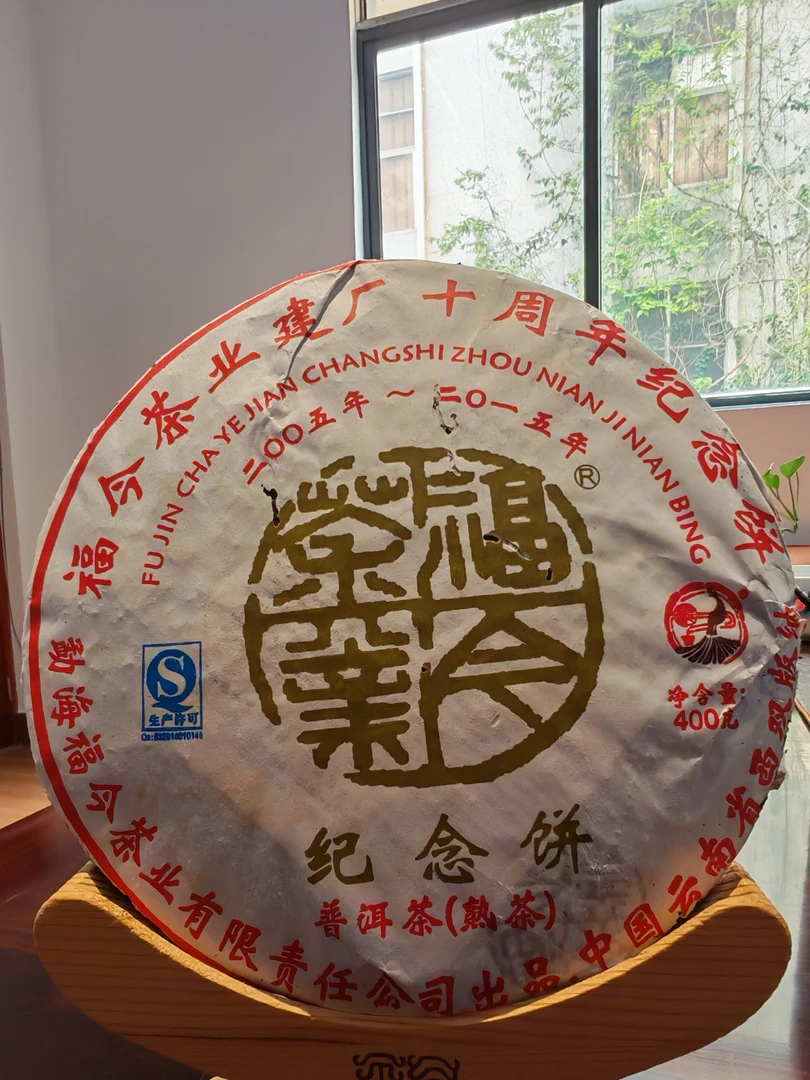 福今茶业建厂十周年纪念饼
FU JIN CHA YE JIAN CHANGSHI ZHOU NIAN JI NIAN BING
二〇〇五年～二〇一五年
福今茶業
®
S
生产许可
净含量:
400克
纪念饼
普洱茶(熟茶)
勐海福今茶业有限责任公司出品 中国云南省西